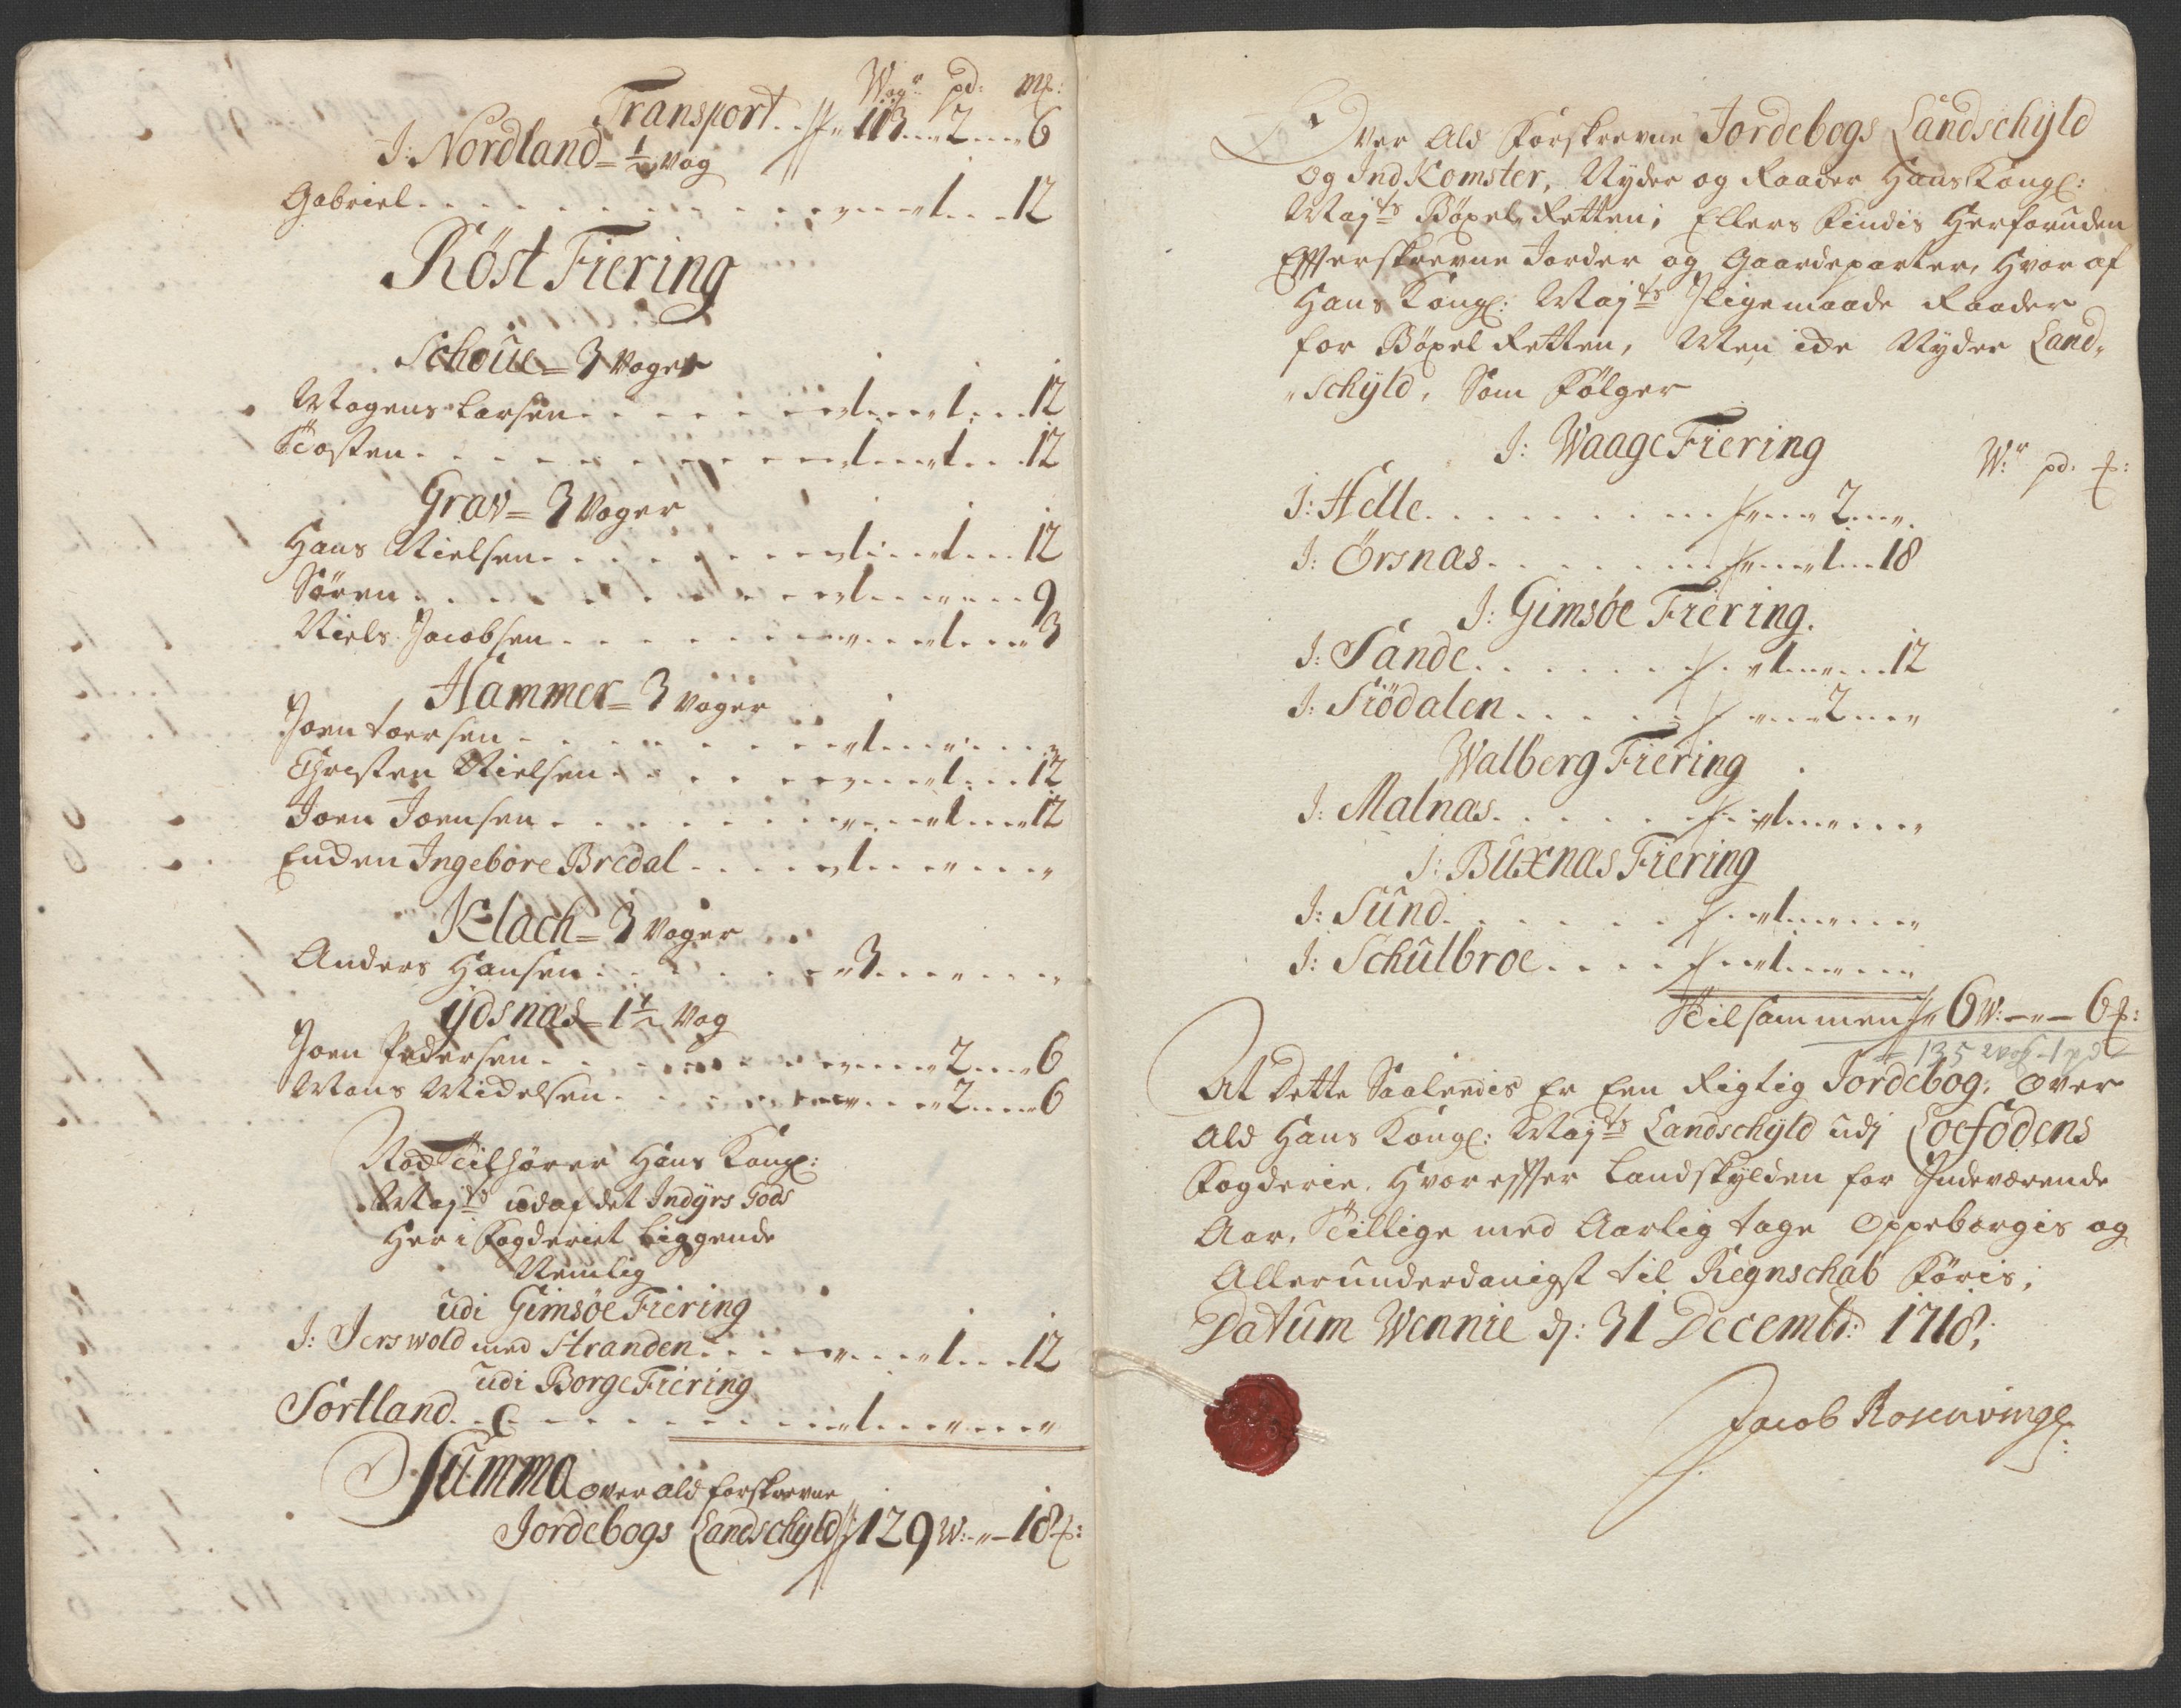 Wog:r pd: m[:
Transport . . // 113 . . . 2 . . . . 6
J: Nordland = ½ Wog
Gabriel . . . . . . . . . . . . 1 . . . 12
Röst Fiering
Schoüe = 3 Woger
Mogens Larsen . . . . . . 1 . . . . 1 . . . 12
Tosten . . . . . . . . . 1 . . . . 1 . . . 12
Grav = 3 Woger
Hans Nielsen . . . . . . . 1 . . . . 1 . . . 12
Sören . . . . . . . . . 1 . . . . " . . . 9
Niels Jacobsen . . . . . . . " . . . . 1 . . . 3
Hammer = 3 Woger
Joen Toersen . . . . . . . . 1 . . . " . . . "
Christen Nielsen . . . . . . " . . . 1 . . . 12
Joen Joensen . . . . . . . " . . . . 1 . . . 12
Enchen Ingebore Bredal . . . . 1 . . . " . . . "
Klach = 3 Woger
Anders Hansen . . . . . . . 3 . . . " . . . "
ÿdsnæs = 1½ Wog
Joen Pedersen . . . . . . . " . . . 2 . . . 6
Mons Michelsen . . . . . . " . . . 2 . . . 6
Noch Tilhører Hans Kongl:
Maj:ts udaf det Indÿrs Gods
Her i Fogderiet Liggende
Nemlig
udi Gimsöe Fiering
J: Jerswold med Stranden . . . " . . . 1 . . . 12
udi Borge Fiering
Sortland . . . . . . . . . 1 . . . " . . . "
Summa over ald forskrevne
Jordebogs Landschÿld // 129 W: - " - 18 [:
Over Ald Forskrevne Jordebogs Landschÿld
Og IndKomster, Nyder og Raader Hans Kongl:
Maj:ts Böxel Retten; Ellers Findis Herforuden
Efterskrevne Jorder og Gaardeparter, Hvor af
Hans Kongl: Maj:ts Iligemaade Raader
for Böxel Retten, Men icke Nyder Land-
Schÿld, Som Følger
J: Waage Fiering
W:r pd: [:
J: Helle . . . . . . . . . " . . . 2 . . . "
J: Örsnæs . . . . . . . . " . . . 1 . . . 18
J: Gimsöe Fiering.
J: Sande . . . . . . . 1 . . . " . . . 12
J: Siödalen . . . . . . " . . . 2 . . . "
Walberg Fiering
J: Malnæs . . . . . . 1 . . . " . . . "
J: Buxnæs Fiering
J: Sund . . . . . . 1 . . . " . . . "
J: Schulbroe . . . . . 1 . . . " . . . "
Tilsammen // 6 W: - " - 6 [:
= 135 Wog - 1 pd -
At Dette Saaledis Er Een Rigtig Jordebog, over
Ald Hans Kongl: Maj:ts Landschÿld udj Loefodens
Fogderie, Hvorefter Landskylden for Indeværende
Aar, Tillige med Aarlig tage Oppebærgis og
Allerunderdanigst til Regnschab Föris;
Datum Wennie d: 31 Decembr: 1718;
Jacob Rosenvinge